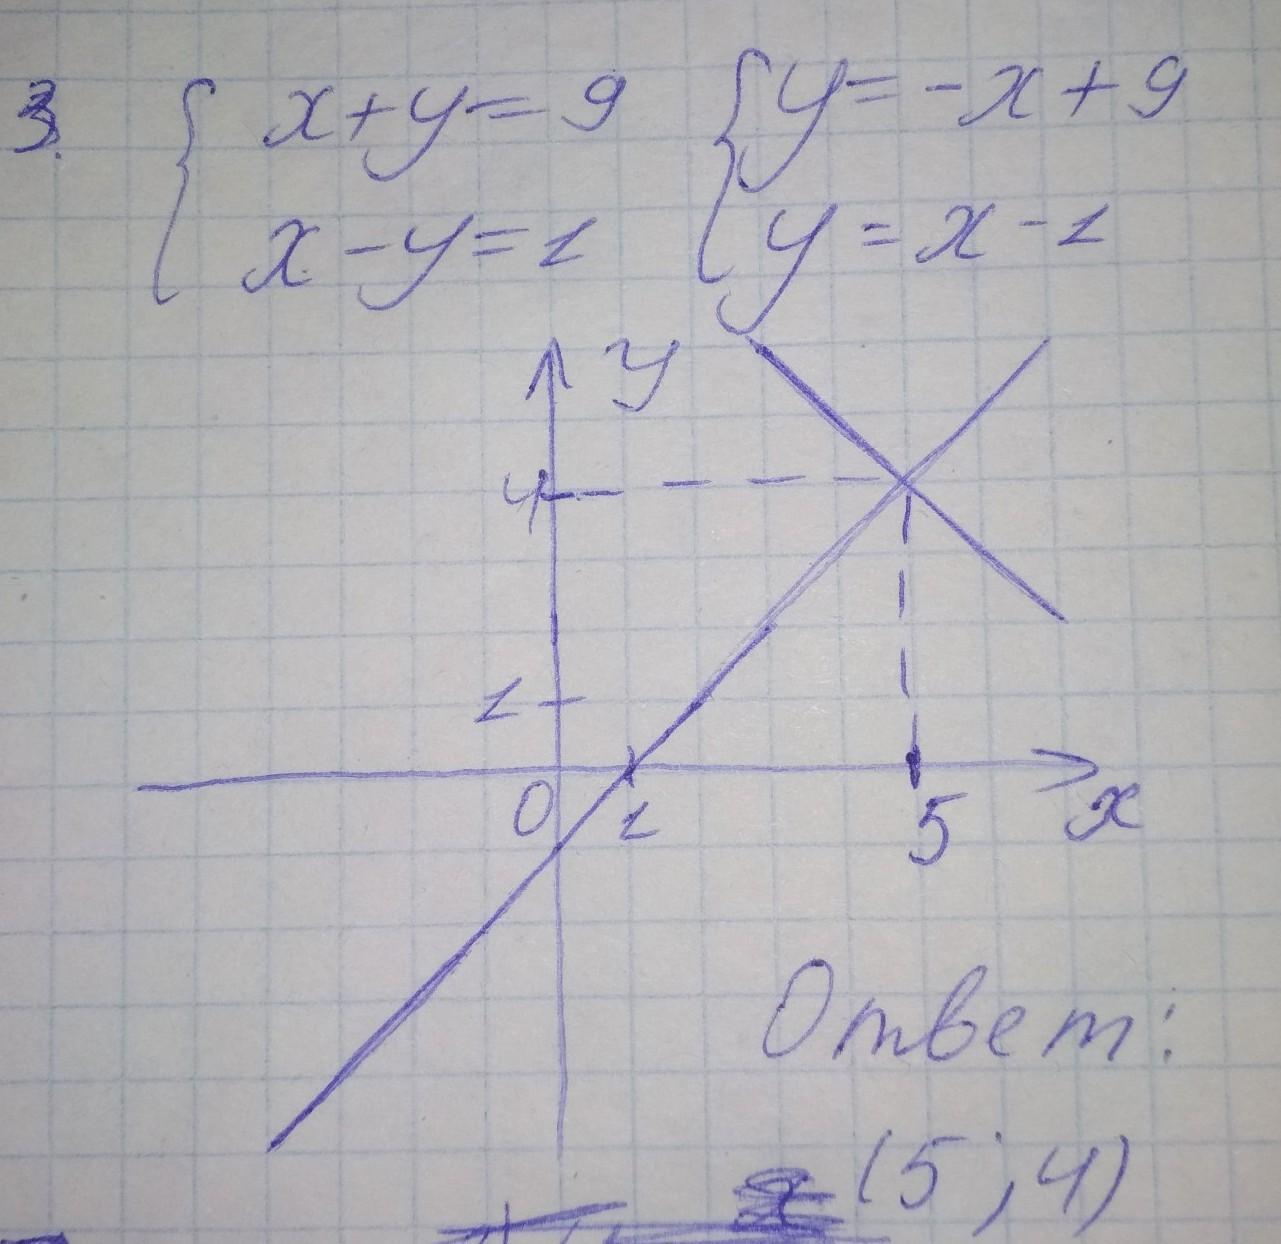 3. { x+y=9 { y=-x+9
x-y=1 y=x-1
y
4
1
0 1 5 x
Ответ:
(5;4)